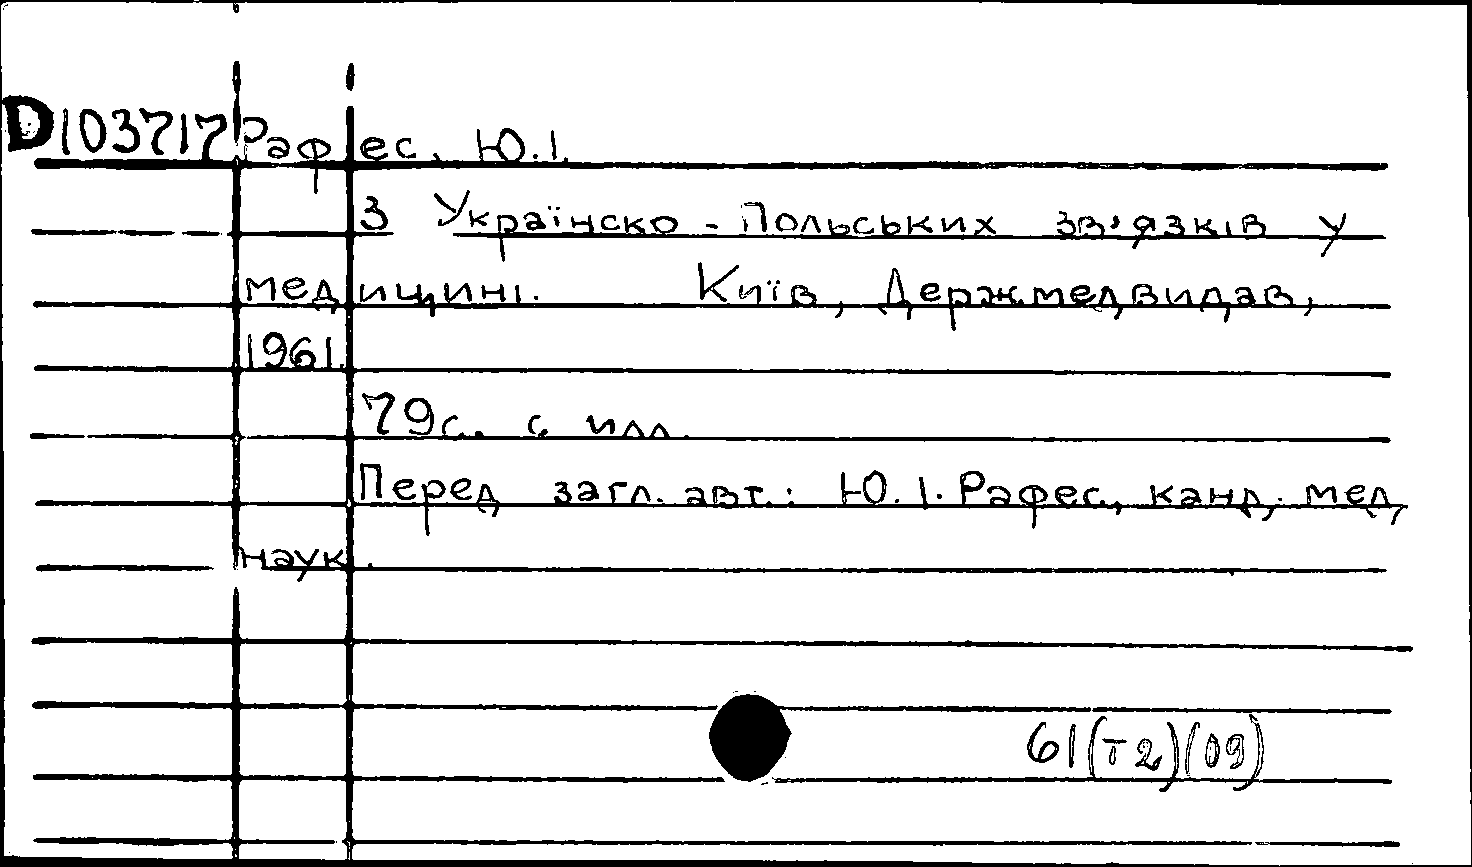 D103717 Рафес, Ю.І.
З Українско-Польських зв'язків у
медицині. Київ, Держмедвидав,
1961.
79с. с илл.
Перед загл. авт.: Ю.І. Рафес, канд. мед,
наук.
61(т2)(09)